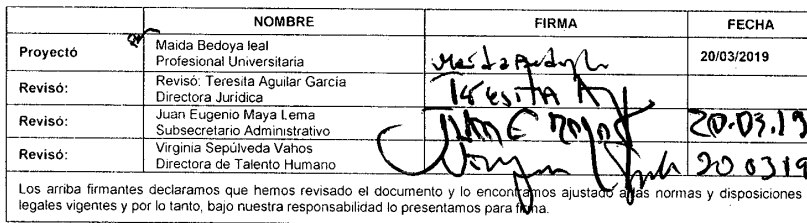 NOMBRE FIRMA FECHA
Proyectó Maida Bedoya leal
Profesional Universitaria Maida Bedoya L 20/03/2019
Revisó: Revisó: Teresita Aguilar García
Directora Jurídica Teresita A
Revisó: Juan Eugenio Maya Lema
Subsecretario Administrativo Juan E Maya L 20.03.19
Revisó: Virginia Sepúlveda Vahos
Directora de Talento Humano 20 03 19
Los arriba firmantes declaramos que hemos revisado el documento y lo encontramos ajustado a las normas y disposiciones
legales vigentes y por lo tanto, bajo nuestra responsabilidad lo presentamos para firma.